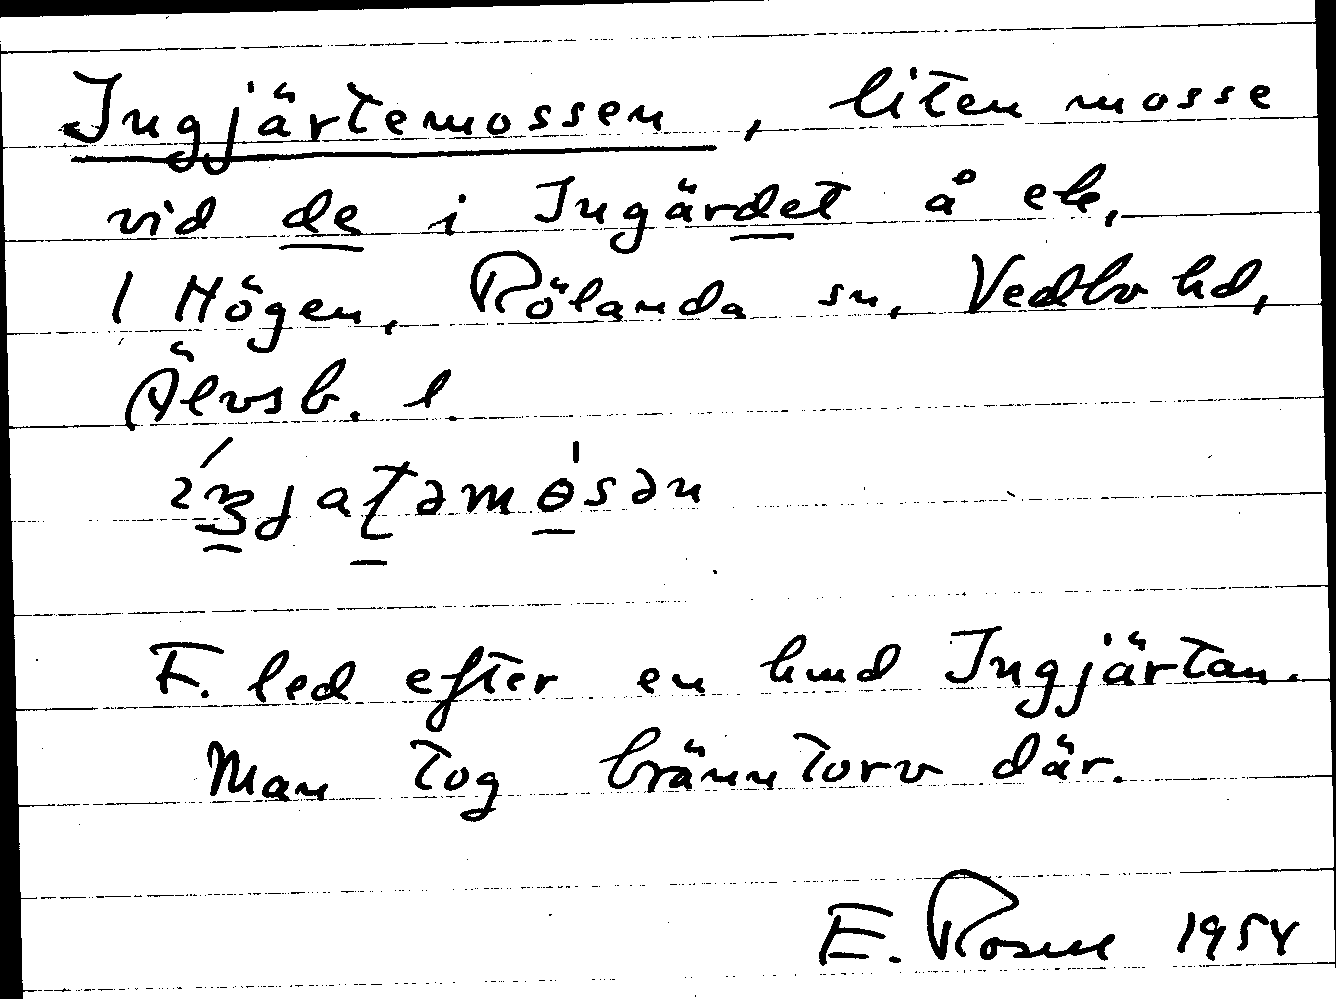 Ingjärtemossen, liten mosse
vid de i Ingärdet å ek,
1 Högen, Rölanda sn, Vedbo hd,
Älvsb. l.
F. led efter en kund Ingjärtan.
Man tog bränntorv där.
E. Rosell 1954